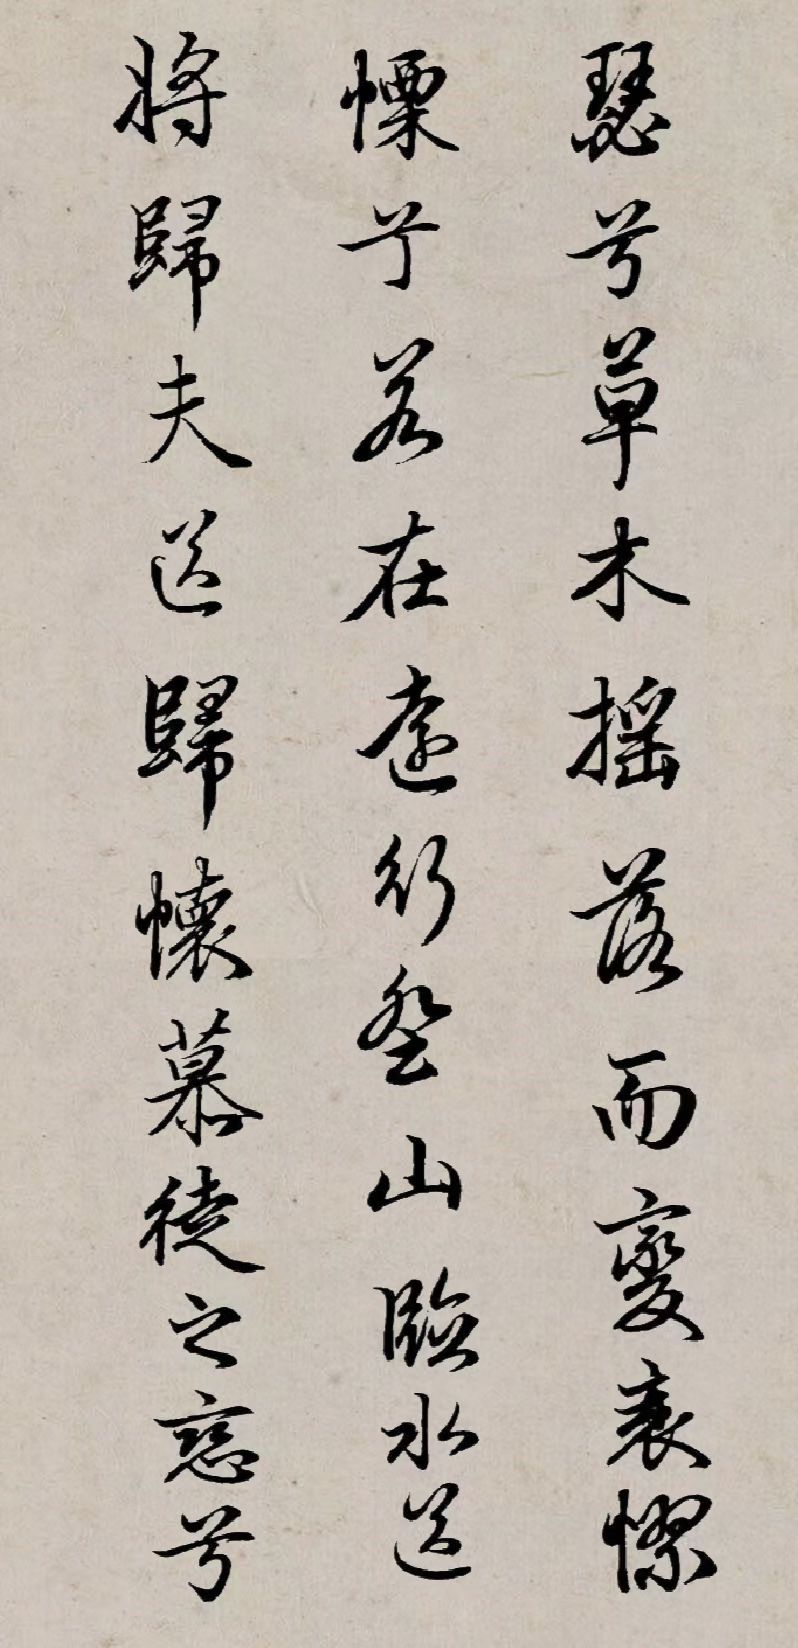 瑟兮草木摇落而變衰憀
慄兮若在遠行登山臨水送
將歸夫送歸懷慕徒之戀兮